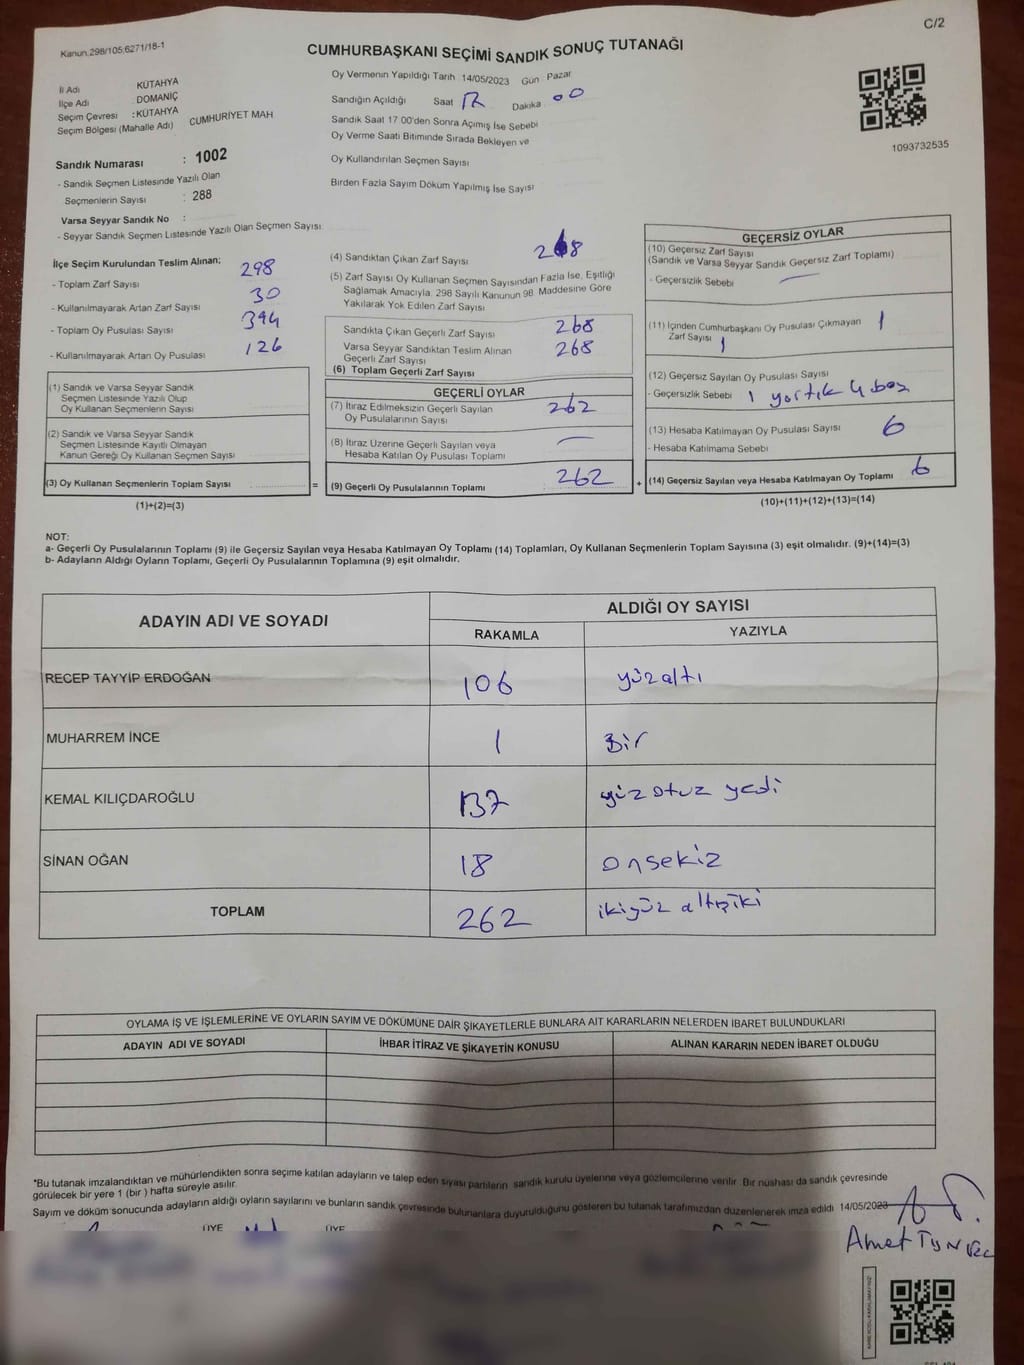 C/2
Kanun.298/105;6271/18-1
CUMHURBAŞKANI SEÇİMİ SANDIK SONUÇ TUTANAĞI
İl Adı KÜTAHYA
İlçe Adı : DOMANİÇ
Seçim Çevresi : KÜTAHYA
Seçim Bölgesi (Mahalle Adı) CUMHURİYET MAH
Oy Vermenin Yapıldığı Tarih 14/05/2023 Gün Pazar
Sandığın Açıldığı Saat Dakika 00
Sandık Saat 17:00'den Sonra Açımış İse Sebebi
Oy Verme Saati Bitiminde Sırada Bekleyen ve
Oy Kullandırılan Seçmen Sayısı
Birden Fazla Sayım Döküm Yapılmış İse Sayısı
1093732535
Sandık Numarası : 1002
- Sandık Seçmen Listesinde Yazılı Olan
Seçmenlerin Sayısı : 288
Varsa Seyyar Sandık No :
- Seyyar Sandık Seçmen Listesinde Yazılı Olan Seçmen Sayısı:
İlçe Seçim Kurulundan Teslim Alınan;
- Toplam Zarf Sayısı 298
- Kullanılmayarak Artan Zarf Sayısı 30
- Toplam Oy Pusulası Sayısı 394
- Kullanılmayarak Artan Oy Pusulası 126
(1) Sandık ve Varsa Seyyar Sandık
Seçmen Listesinde Yazılı Olup
Oy Kullanan Seçmenlerin Sayısı
(2) Sandık ve Varsa Seyyar Sandık
Seçmen Listesinde Kayıtlı Olmayan
Kanun Gereği Oy Kullanan Seçmen Sayısı
(3) Oy Kullanan Seçmenlerin Toplam Sayısı =
(1)+(2)=(3)
(4) Sandıktan Çıkan Zarf Sayısı 268
(5) Zarf Sayısı Oy Kullanan Seçmen Sayısından Fazla İse, Eşitliği
Sağlamak Amacıyla, 298 Sayılı Kanunun 98. Maddesine Göre
Yakılarak Yok Edilen Zarf Sayısı
Sandıkta Çıkan Geçerli Zarf Sayısı 268
Varsa Seyyar Sandıktan Teslim Alınan
Geçerli Zarf Sayısı 268
(6) Toplam Geçerli Zarf Sayısı
GEÇERLİ OYLAR
(7) İtiraz Edilmeksizin Geçerli Sayılan
Oy Pusulalarının Sayısı 262
(8) İtiraz Üzerine Geçerli Sayılan veya
Hesaba Katılan Oy Pusulası Toplamı
(9) Geçerli Oy Pusulalarının Toplamı 262 +
GEÇERSİZ OYLAR
(10) Geçersiz Zarf Sayısı
(Sandık ve Varsa Seyyar Sandık Geçersiz Zarf Toplamı)
- Geçersizlik Sebebi
(11) İçinden Cumhurbaşkanı Oy Pusulası Çıkmayan 1
Zarf Sayısı 1
(12) Geçersiz Sayılan Oy Pusulası Sayısı
- Geçersizlik Sebebi 1 yırtık 4 boş
(13) Hesaba Katılmayan Oy Pusulası Sayısı 6
- Hesaba Katılmama Sebebi
(14) Geçersiz Sayılan veya Hesaba Katılmayan Oy Toplamı 6
(10)+(11)+(12)+(13)=(14)
NOT:
a- Geçerli Oy Pusulalarının Toplamı (9) ile Geçersiz Sayılan veya Hesaba Katılmayan Oy Toplamı (14) Toplamları, Oy Kullanan Seçmenlerin Toplam Sayısına (3) eşit olmalıdır. (9)+(14)=(3)
b- Adayların Aldığı Oyların Toplamı, Geçerli Oy Pusulalarının Toplamına (9) eşit olmalıdır.
ADAYIN ADI VE SOYADI ALDIĞI OY SAYISI
RAKAMLA YAZIYLA
RECEP TAYYİP ERDOĞAN 106 yüzaltı
MUHARREM İNCE 1 Bir
KEMAL KILIÇDAROĞLU 137 yüz otuz yedi
SİNAN OĞAN 18 onsekiz
TOPLAM 262 ikiyüz altmışiki
OYLAMA İŞ VE İŞLEMLERİNE VE OYLARIN SAYIM VE DÖKÜMÜNE DAİR ŞİKAYETLERLE BUNLARA AİT KARARLARIN NELERDEN İBARET BULUNDUKLARI
ADAYIN ADI VE SOYADI İHBAR İTİRAZ VE ŞİKAYETİN KONUSU ALINAN KARARIN NEDEN İBARET OLDUĞU
*Bu tutanak imzalandıktan ve mühürlendikten sonra seçime katılan adayların ve talep eden siyasi partilerin sandık kurulu üyelerine veya gözlemcilerine verilir. Bir nüshası da sandık çevresinde
görülecek bir yere 1 (bir ) hafta süreyle asılır.
Sayım ve döküm sonucunda adayların aldığı oyların sayılarını ve bunların sandık çevresinde bulunanlara duyurulduğunu gösteren bu tutanak tarafımızdan düzenlenerek imza edildi 14/05/2023
ÜYE ÜYE
Amet